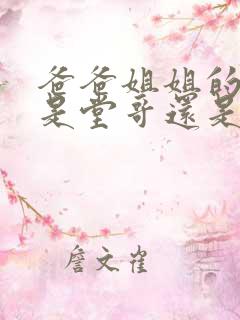 爸爸姐姐的
是堂哥還是
詹文雀